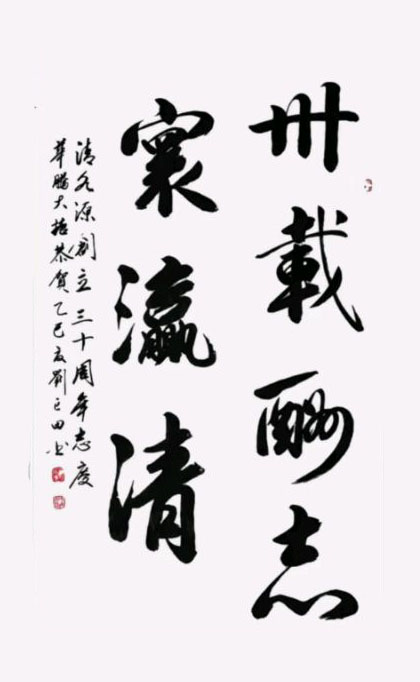 卅載酬志
寰瀛清
清水源創立三十周年志慶
華騰大 恭賀乙巳夏劉 田書